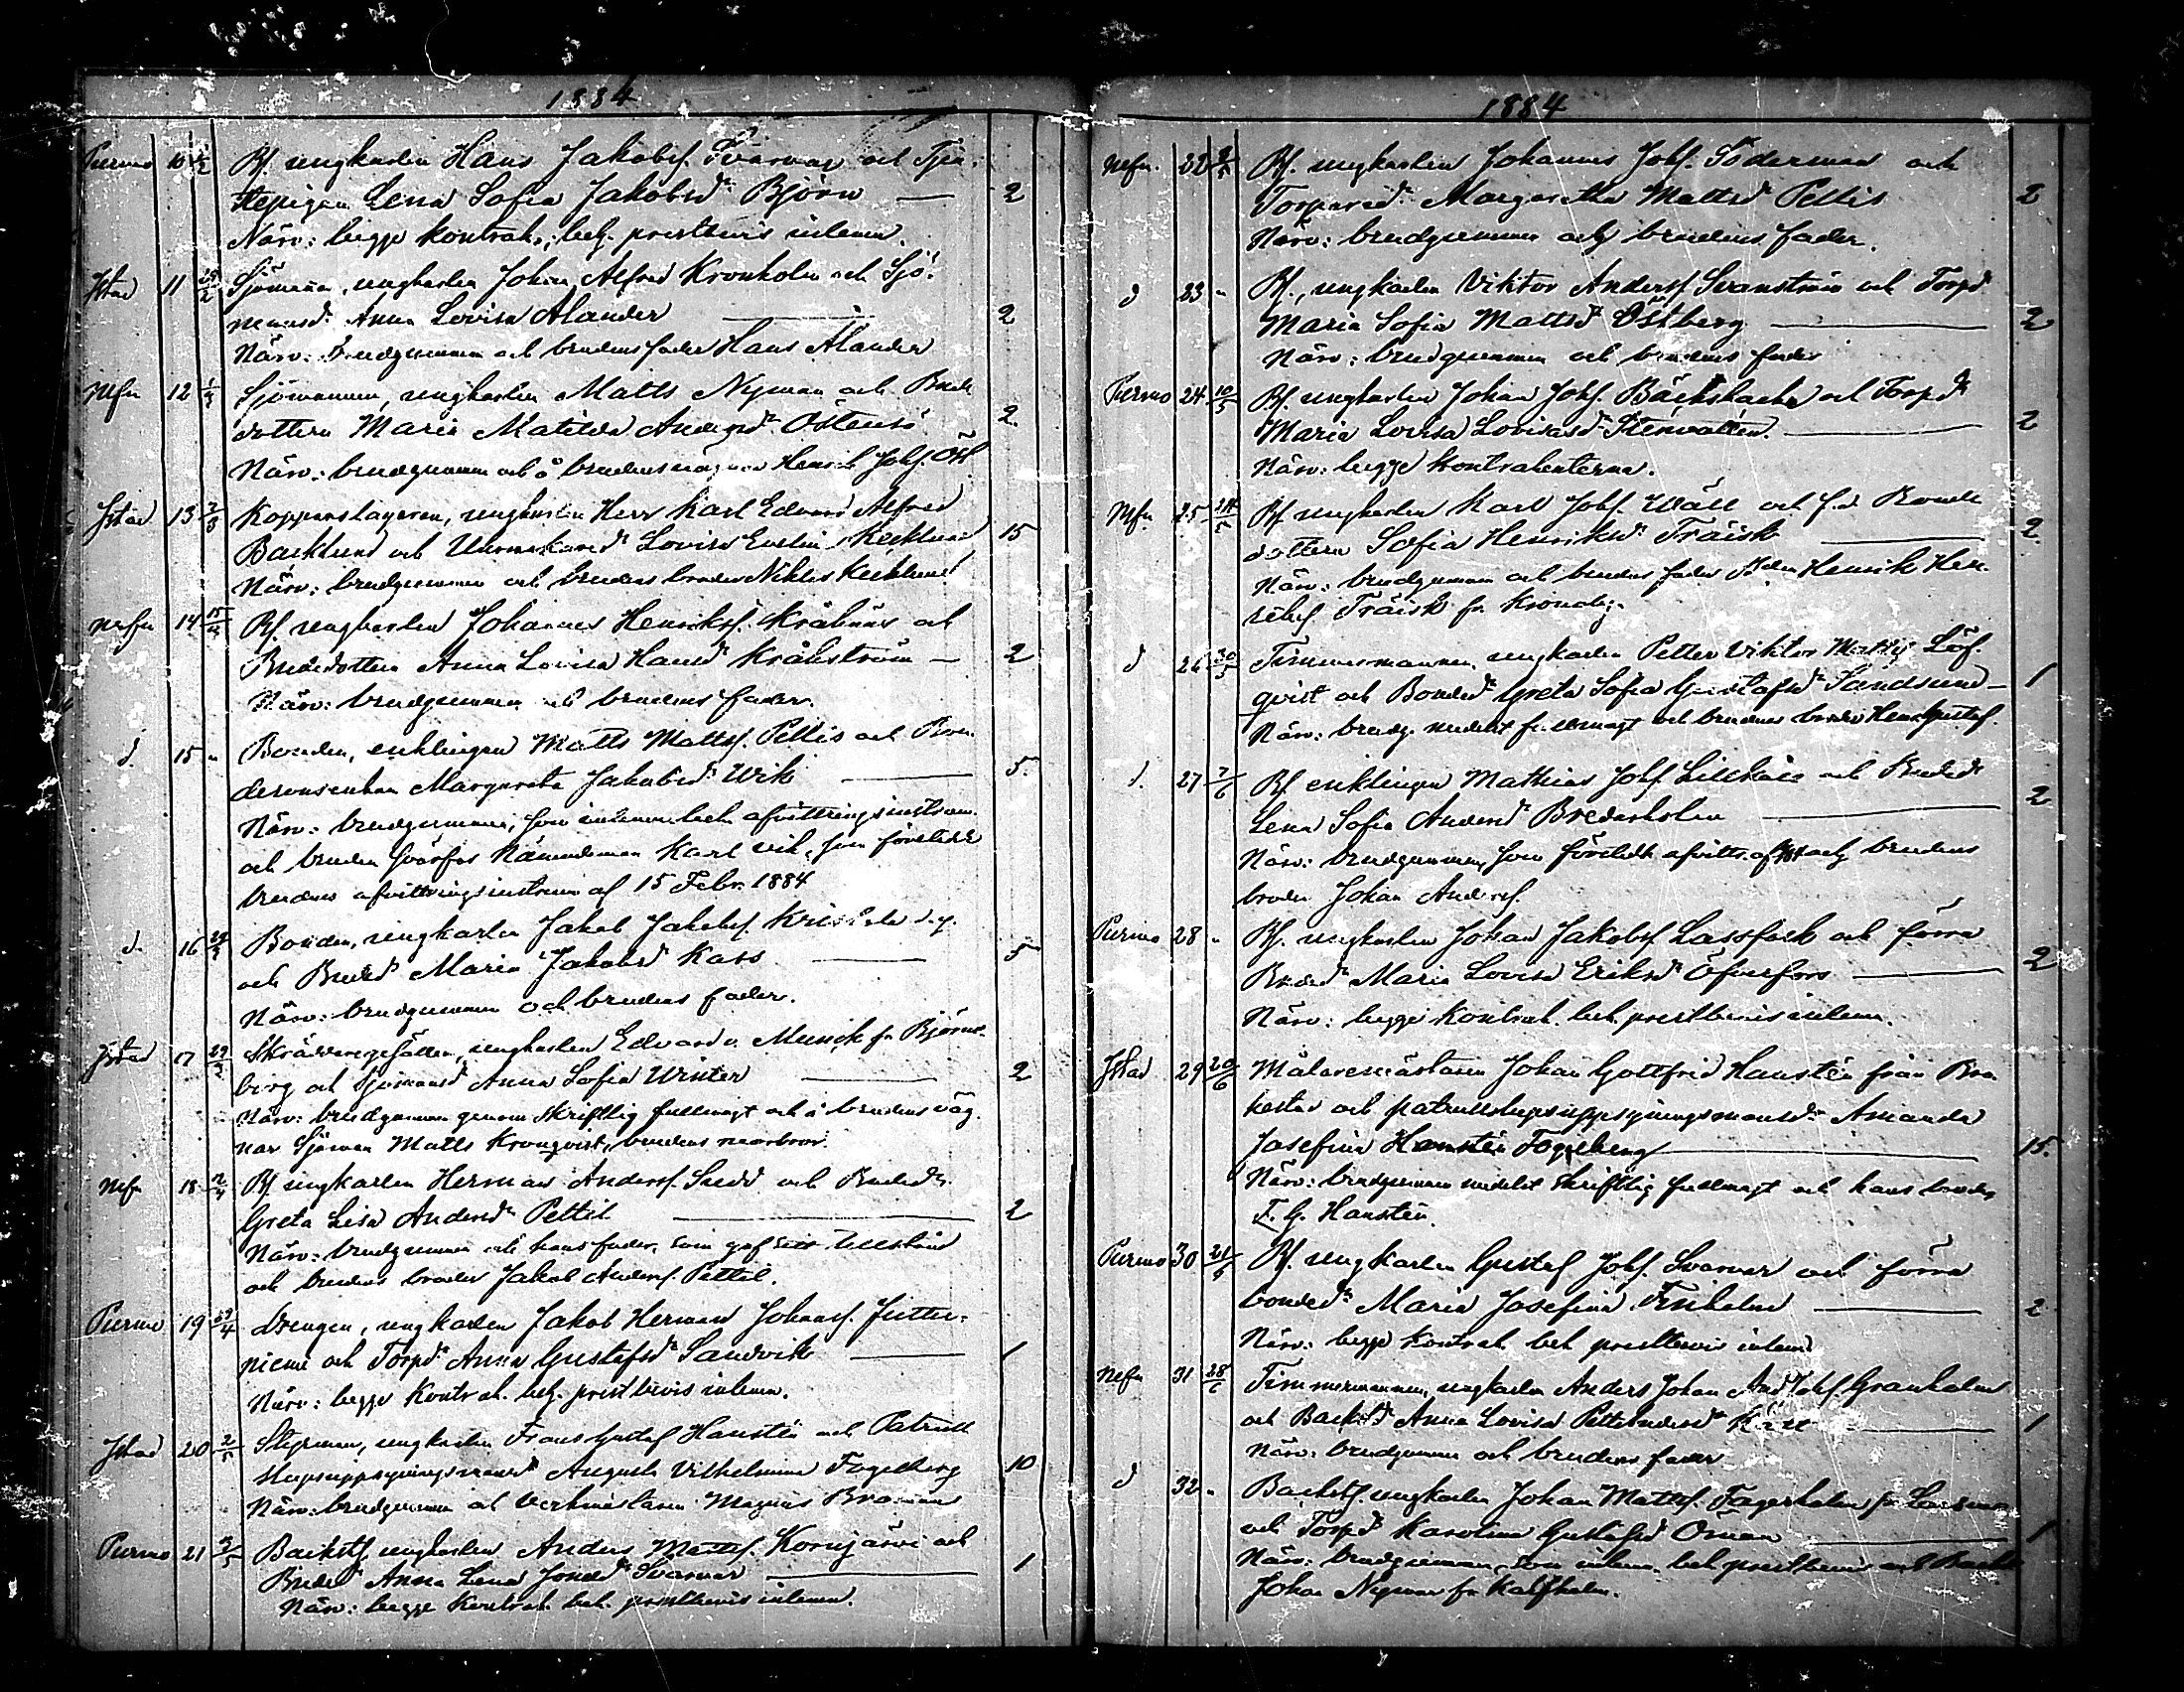 1884
Purmo 10 Bf. ungkarlen Hans Jakobsf. Svarvar och Tjen-
stepigan Lena Sofia Jakobsdr Björn — 2
Närv: begge kontrah., beh. prestbevis inlemn.
Jstad 11 29/2 Sjömannen, ungkarlen Johan Alfred Kronholm och Sjö-
mansdr Anna Lovisa Ålander — 2
Närv: brudgummen och brudens fader Hans Ålander
Nefn 12 Sjömannen, ungkarlen Matts Nyman och Bonde
dottern Maria Matilda Andersdr Östensö 2.
Närv: brudgummen och å brudens vägnar Henrik Johsf. Öst
Jstad 13 7/3 Kopparslagaren, ungkarlen Herr Karl Edvard Alfred
Backlund och Urmakaredr Lovisa Evelin Kecklund 15
Närv: brudgummen och brudens broder Niklas Kecklund
Nefn 14 15/3 Bf. ungkarlen Johannes Henriksf. Kråknäs och
Bondedottern Anna Lovisa Hansdr Kråkström — 2
Närv: brudgummen och brudens fader.
d. 15 " Bonden, enklingen Matts Mattsf. Pellis och Bon-
deenkan Margareta Jakobsdr Wik — 5.
Närv: brudgummen, som inlemn. beh. afvittringsinstrum.
och brudens svärfar Nämndeman Karl Vik, som företedde
brudens afvittringsinstrum af 15 Febr. 1884
d. 16 29/3 Bonden, ungkarlen Jakob Jakobsf.
och Bondedr Maria Jakobsdr Kass — 5
Närv: brudgummen och brudens fader.
Jstad 17 29/3 Skräddaregesällen, ungkarlen Edvard Munck fr Björne-
borg och Sjömansdr Anna Sofia Winter — 2
Närv: brudgummen genom skriftlig fullmagt och å brudens väg-
nar Sjöman Matts Kronqvist, brudens morbror.
Nefn 18 12/4 Bf. ungkarlen Herman Andersf. Sudd och Bondedr
Greta Lisa Andersdr Pettil — 2
Närv: brudgummen och hans fader, som gaf sitt tillstånd
och brudens broder Jakob Andersf. Pettil.
Purmo 19 Drengen, ungkarlen Jakob Herman Johansf.
niemi och Torpdr Anna Gustafsdr Sandvik — 1
Närv: begge kontrah. beh. prestbevis inlemn.
Jstad 20 2/5 Styrman, ungkarlen Frans Gustaf Hanstén och Patrull
slupsuppsyningsmansdr Augusta Vilhelmina Fogelberg 10
Närv: brudgummen och verkmästaren Magnus
Purmo 21 Backstf. ungkarlen Anders Mattsf. Kornjärvi och
Bondedr Anna Lena Jonasdr Svarvar — 1
Närv: begge kontrah. beh. prestbevis inlemn.
1884
Nefn. 22 Bf. ungkarlen Johannes Johsf. Söderman och
Torparedr Margaretha Mattsdr Pellis 2
Närv: brudgummen och brudens fader.
d 23 " Bf., ungkarlen Viktor Andersf. Svanström och Torpdr
Maria Sofia Mattsdr Östberg — 2
Närv: brudgummen och brudens fader
Purmo 24 10/5 Bf. ungkarlen Johan Johsf. Bäcksbacka och Torpdr
Maria Lovisa Lovisasdr Stenvallen. — 2
Närv: begge kontrahenterna.
Nefn 25 24/5 Bf ungkarlen Karl Johsf. Wäll och f.d. Bonde
dottern Sofia Henriksdr Träisk — 2
Närv: brudgummen och brudens fader Henrik Hen-
riksf. Träisk fr Kronoby.
d 26 30/5 Timmermannen, ungkarlen Petter Viktor Mattsf Löf-
qvist och Bondedr Greta Sofia Gustafsdr Sandsund — 1
Närv: brudg. medelst fullmagt och brudens broder Hans Gustaf.
d. 27 7/6 Bf enklingen Mathias Johsf Lillkåll och Bondedr
Lena Sofia Andersdr Bredarholm — 2
Närv: brudgummen, som företedt afvittr. af och brudens
broder Johan Andersf.
Purmo 28 " Bf. ungkarlen Johan Jakobsf Lassfolk och förra
Bondedr Maria Lovisa Eriksdr Öfverfors — 2
Närv: begge kontrah. beh. prestbevis inlemn.
Jstad 29 20/6 Målaremästaren Johan Gottfrid Hanstén från Bra-
hestad och patrullslupsuppsyningsmansdr Amanda
Josefina Hanstén Fogelberg — 15.
Närv: brudgummen medelst skriftlig fullmagt och hans broder
F. G. Hanstén.
Purmo 30 21/6 Bf. ungkarlen Gustaf Johsf. Svarvar och förra
bondedr Maria Josefina Finholm — 2
Närv: begge kontrah. beh prestbevis inlemn
Nefn 31 28/6 Timmermannen, ungkarlen Anders Johan And Johsf. Granholm
och Backstdr Anna Lovisa Pettersdr Käll — 1
Närv: brudgummen och brudens fader
d 32 " Backstf. ungkarlen Johan Mattsf. Fagerholm fr Larsmo
och Torpdr Karolina Gustafsdr Öman — 1
Närv: brudgummen, som inlemn. beh prestbevis och Backst.
Johan Nyman fr Kalfholm.